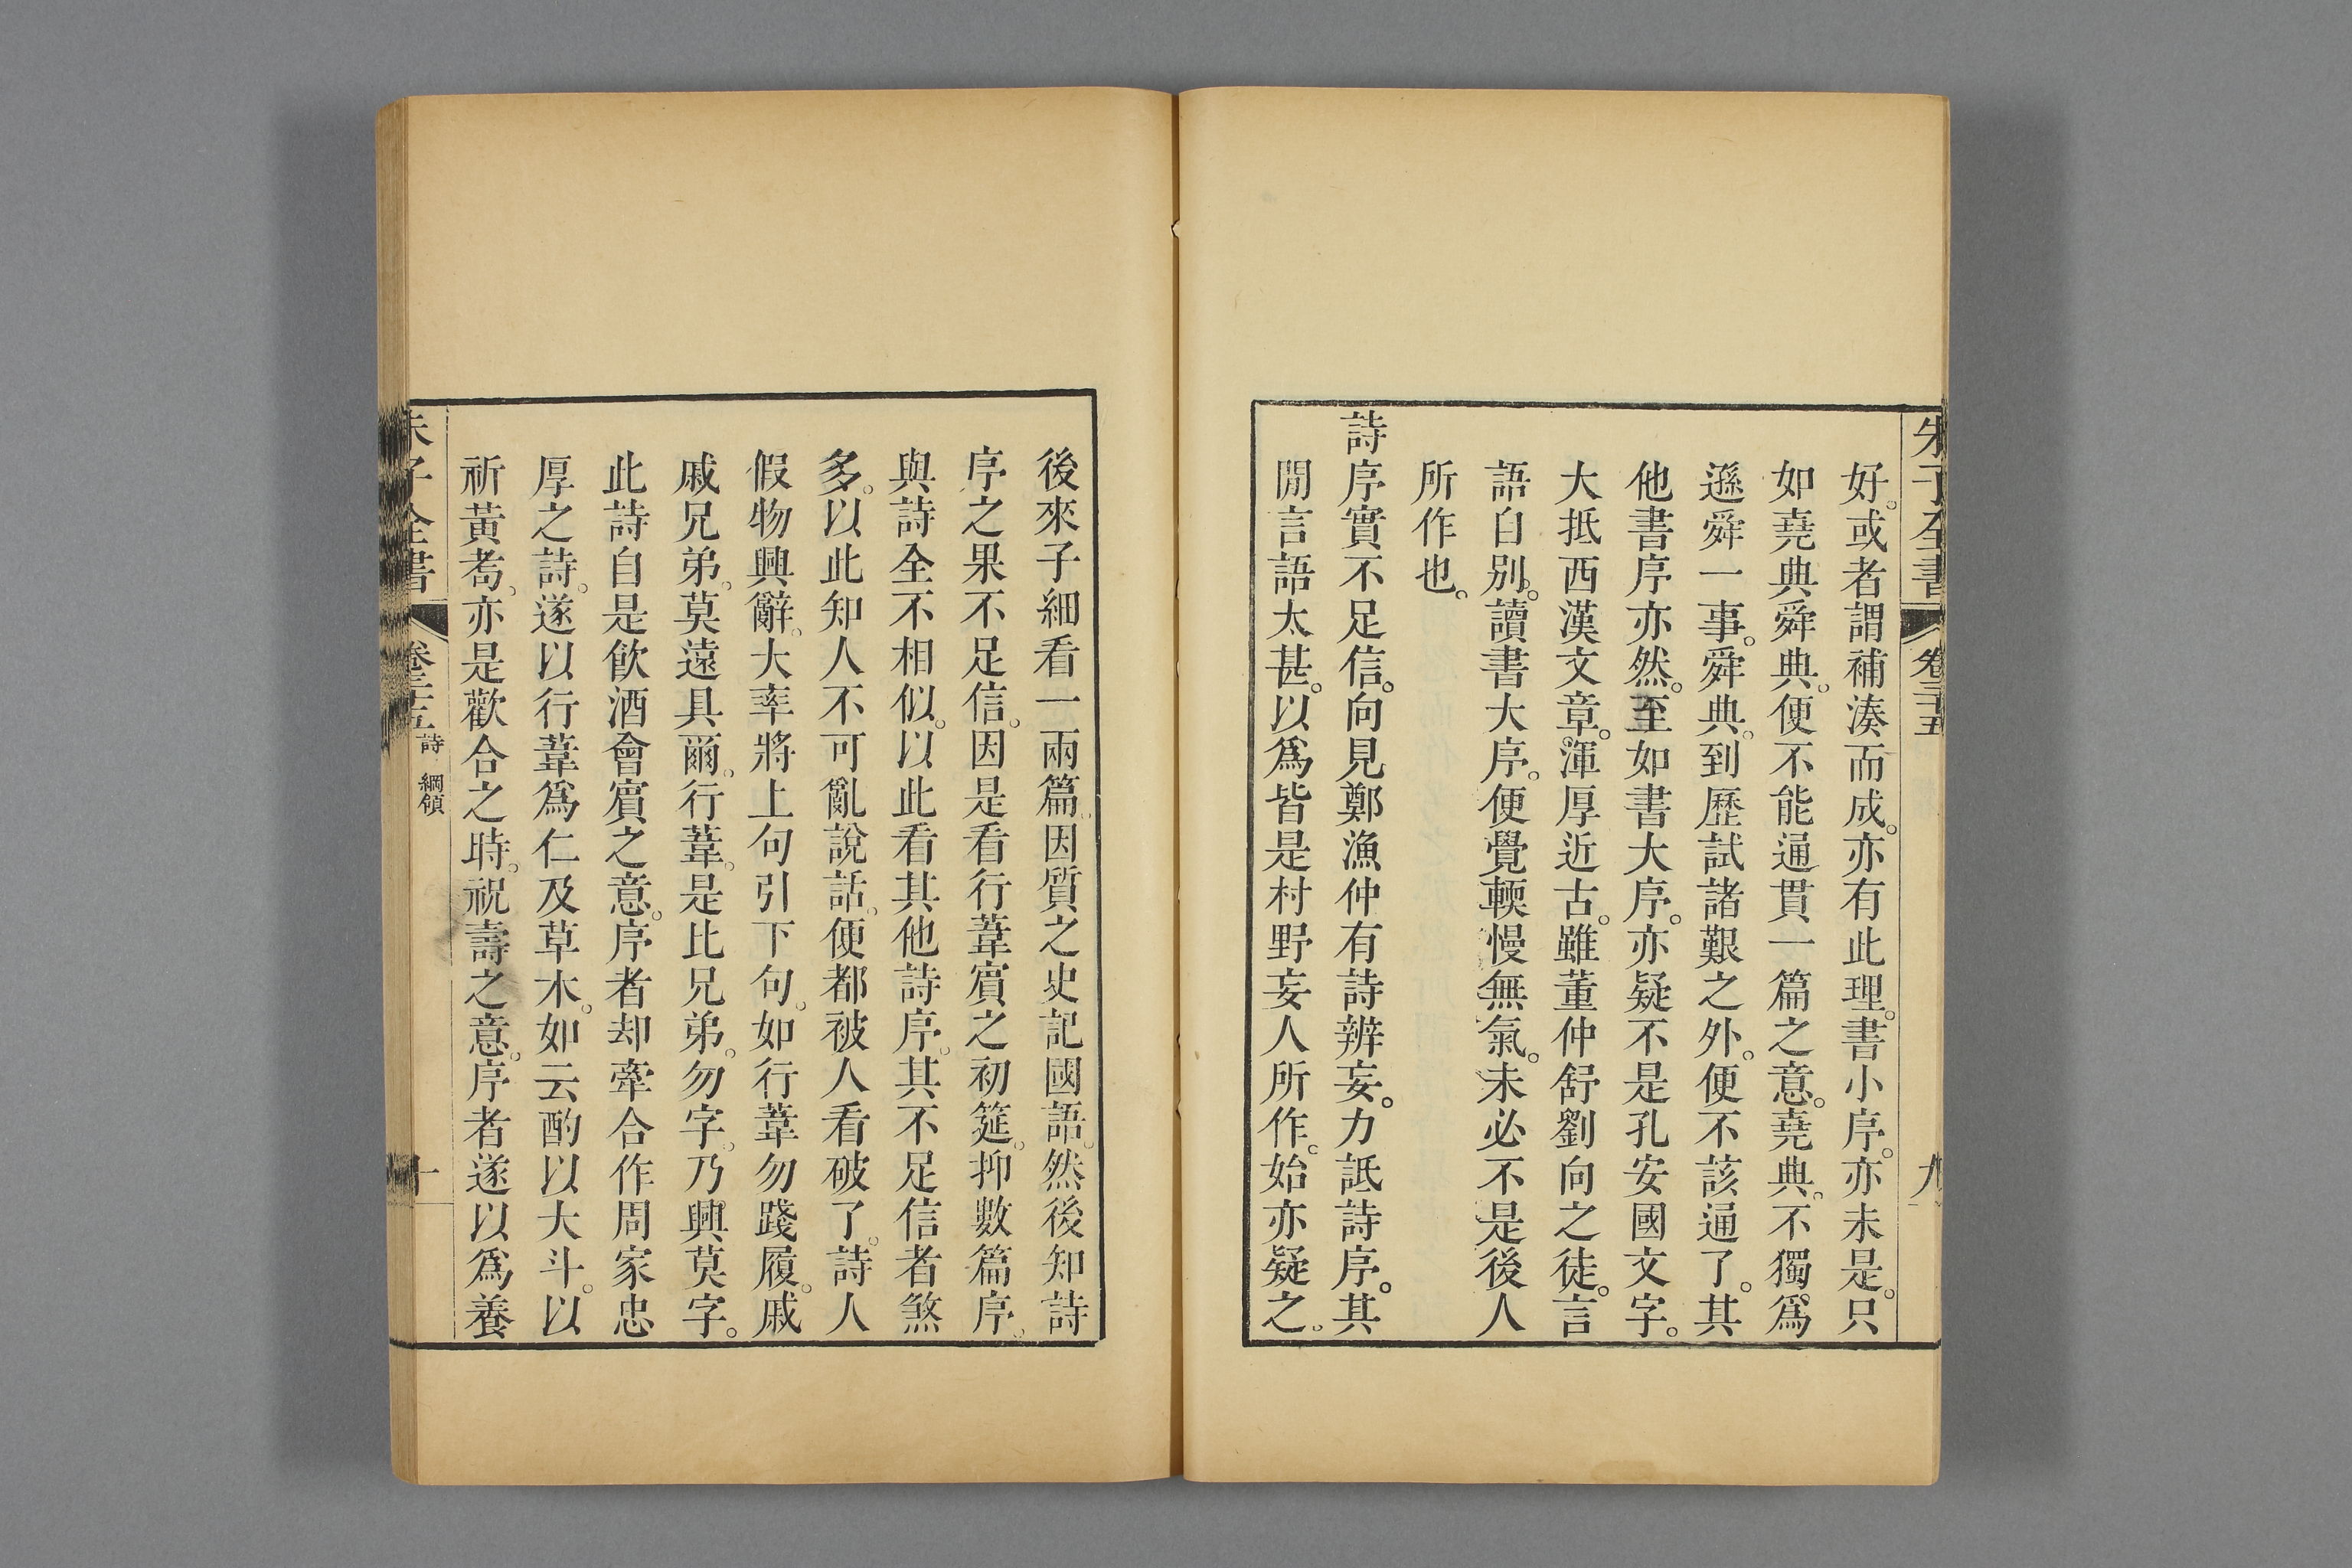 朱子全書 卷三十五 九
好。或者謂補湊而成。亦有此理。書小序。亦未是。只
如堯典舜典。便不能通貫一篇之意。堯典。不獨爲
遜舜一事。舜典。到歷試諸艱之外。便不該通了。其
他書序亦然。至如書大序。亦疑不是孔安國文字。
大抵西漢文章。渾厚近古。雖董仲舒劉向之徒。言
語自別。讀書大序。便覺輭慢無氣。未必不是後人
所作也。
詩序實不足信。向見鄭漁仲有詩辨妄。力詆詩序。其
閒言語太甚。以爲皆是村野妄人所作。始亦疑之。
後來子細看一兩篇。因質之史記國語。然後知詩
序之果不足信。因是看行葦賓之初筵。抑數篇序。
與詩全不相似。以此看其他詩序。其不足信者煞
多。以此知人不可亂說話。便都被人看破了。詩人
假物興辭。大率將上句引下句。如行葦勿踐履。戚
戚兄弟。莫遠具爾。行葦。是比兄弟。勿字。乃興莫字。
此詩自是飲酒會賓之意。序者却牽合作周家忠
厚之詩。遂以行葦爲仁及草木。如云酌以大斗。以
祈黃耇。亦是歡合之時。祝壽之意。序者遂以爲養
朱子全書 卷三十五 詩 綱領 十